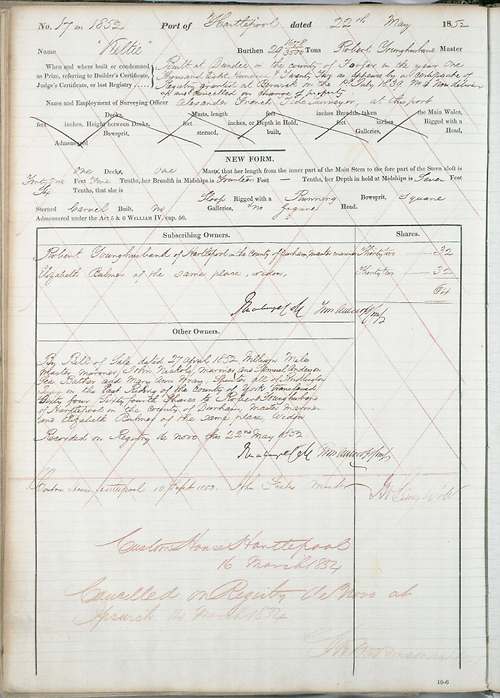 No. 17 in 1852 Port of Hartlepool dated 22nd May 1852
Name "Kittie" Burthen Tons Robert Younghusband Master
When and where built or condemned
as Prize, referring to Builder's Certificate,
Judge's Certificate, or last Registry
Built at Dundee in the county of Forfar in the year One
Thousand Eight Hundred & Twenty as appears by a Certificate of
Registry granted at Berwick on the July 1839 No 4 Now delivered
up and cancelled on change of property
Name and Employment of Surveying Officer Alexander French Tide Surveyor, at this port
Decks, Masts, length feet inches Breadth taken the Main Wales,
feet inches, Height between Decks, feet inches, or Depth in Hold, feet Rigged with a
Bowsprit, sterned, built, Galleries, Head,
Admeasured
NEW FORM.
One Decks, one Masts, that her length from the inner part of the Main Stem to the fore part of the Stern aloft is
Feet Tenths, her Breadth in Midships is Fourteen Feet Tenths, her Depth in hold at Midships is Seven Feet
Six Tenths, that she is Sloop Rigged with a Running Bowsprit, Square
Sterned Carvel Built, No Galleries, No figure Head.
Admeasured under the Act 5 & 6 WILLIAM IV, cap. 56.
Subscribing Owners. Shares.
Robert Younghusband of Hartlepool in the County of Durham, master mariner Thirty two 32
Elizabeth Bulmer of the same place, widow, Thirty two 32
64
Other Owners.
By Bill of Sale dated 27 April 1852 William
Master mariner, John mariner, and Samuel Anderson
and Mary Ann May Spinster all of
in the East Riding of the County of York transferred
Sixty four Sixty fourth Shares to Robert Younghusband
of Hartlepool in the County of Durham, Master mariner
and Elizabeth Bulmer of the same place Widow
Recorded on Registry de novo from 22nd May 1852
Custom House Hartlepool 10 Sept 1853. John Master
Custom House Hartlepool
16 March 1854
Cancelled on Registry de Novo at
Ipswich 14 March 1854
10-6